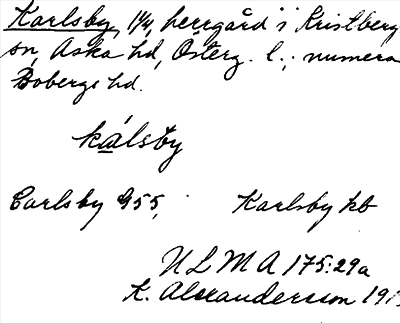 Karlsby, 1/4, herrgård i Kristberg
sn, Aska hd, Österg. l.; numera
Bobergs hd.
kálsby
Carlsby G55, Karlsby kb
ULMA 175:29a
K. Alexandersson